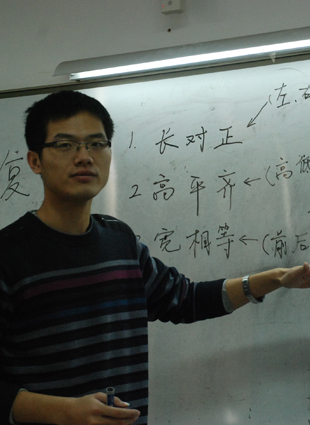 复
1. 长对正 ← (左、右
2 高平齐 ← (高低
宽相等 ← (前后